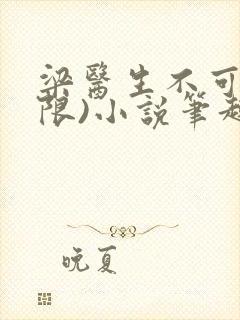 梁醫生不可
限)小說筆趣
晚夏